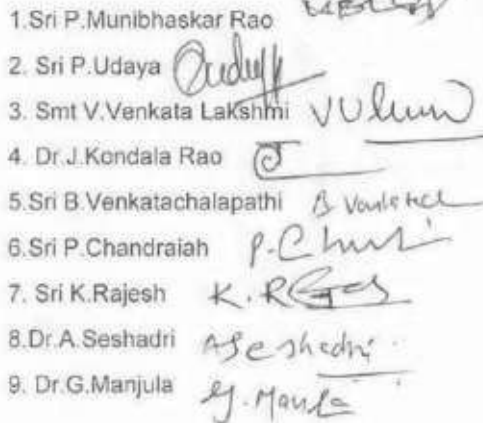 1.Sri P.Munibhaskar Rao
2. Sri P.Udaya
3. Smt V.Venkata Lakshmi
4. Dr.J.Kondala Rao
5.Sri B.Venkatachalapathi
6.Sri P.Chandraiah P.
7. Sri K.Rajesh K.
8.Dr.A.Seshadri ASeshadri
9. Dr.G.Manjula G.